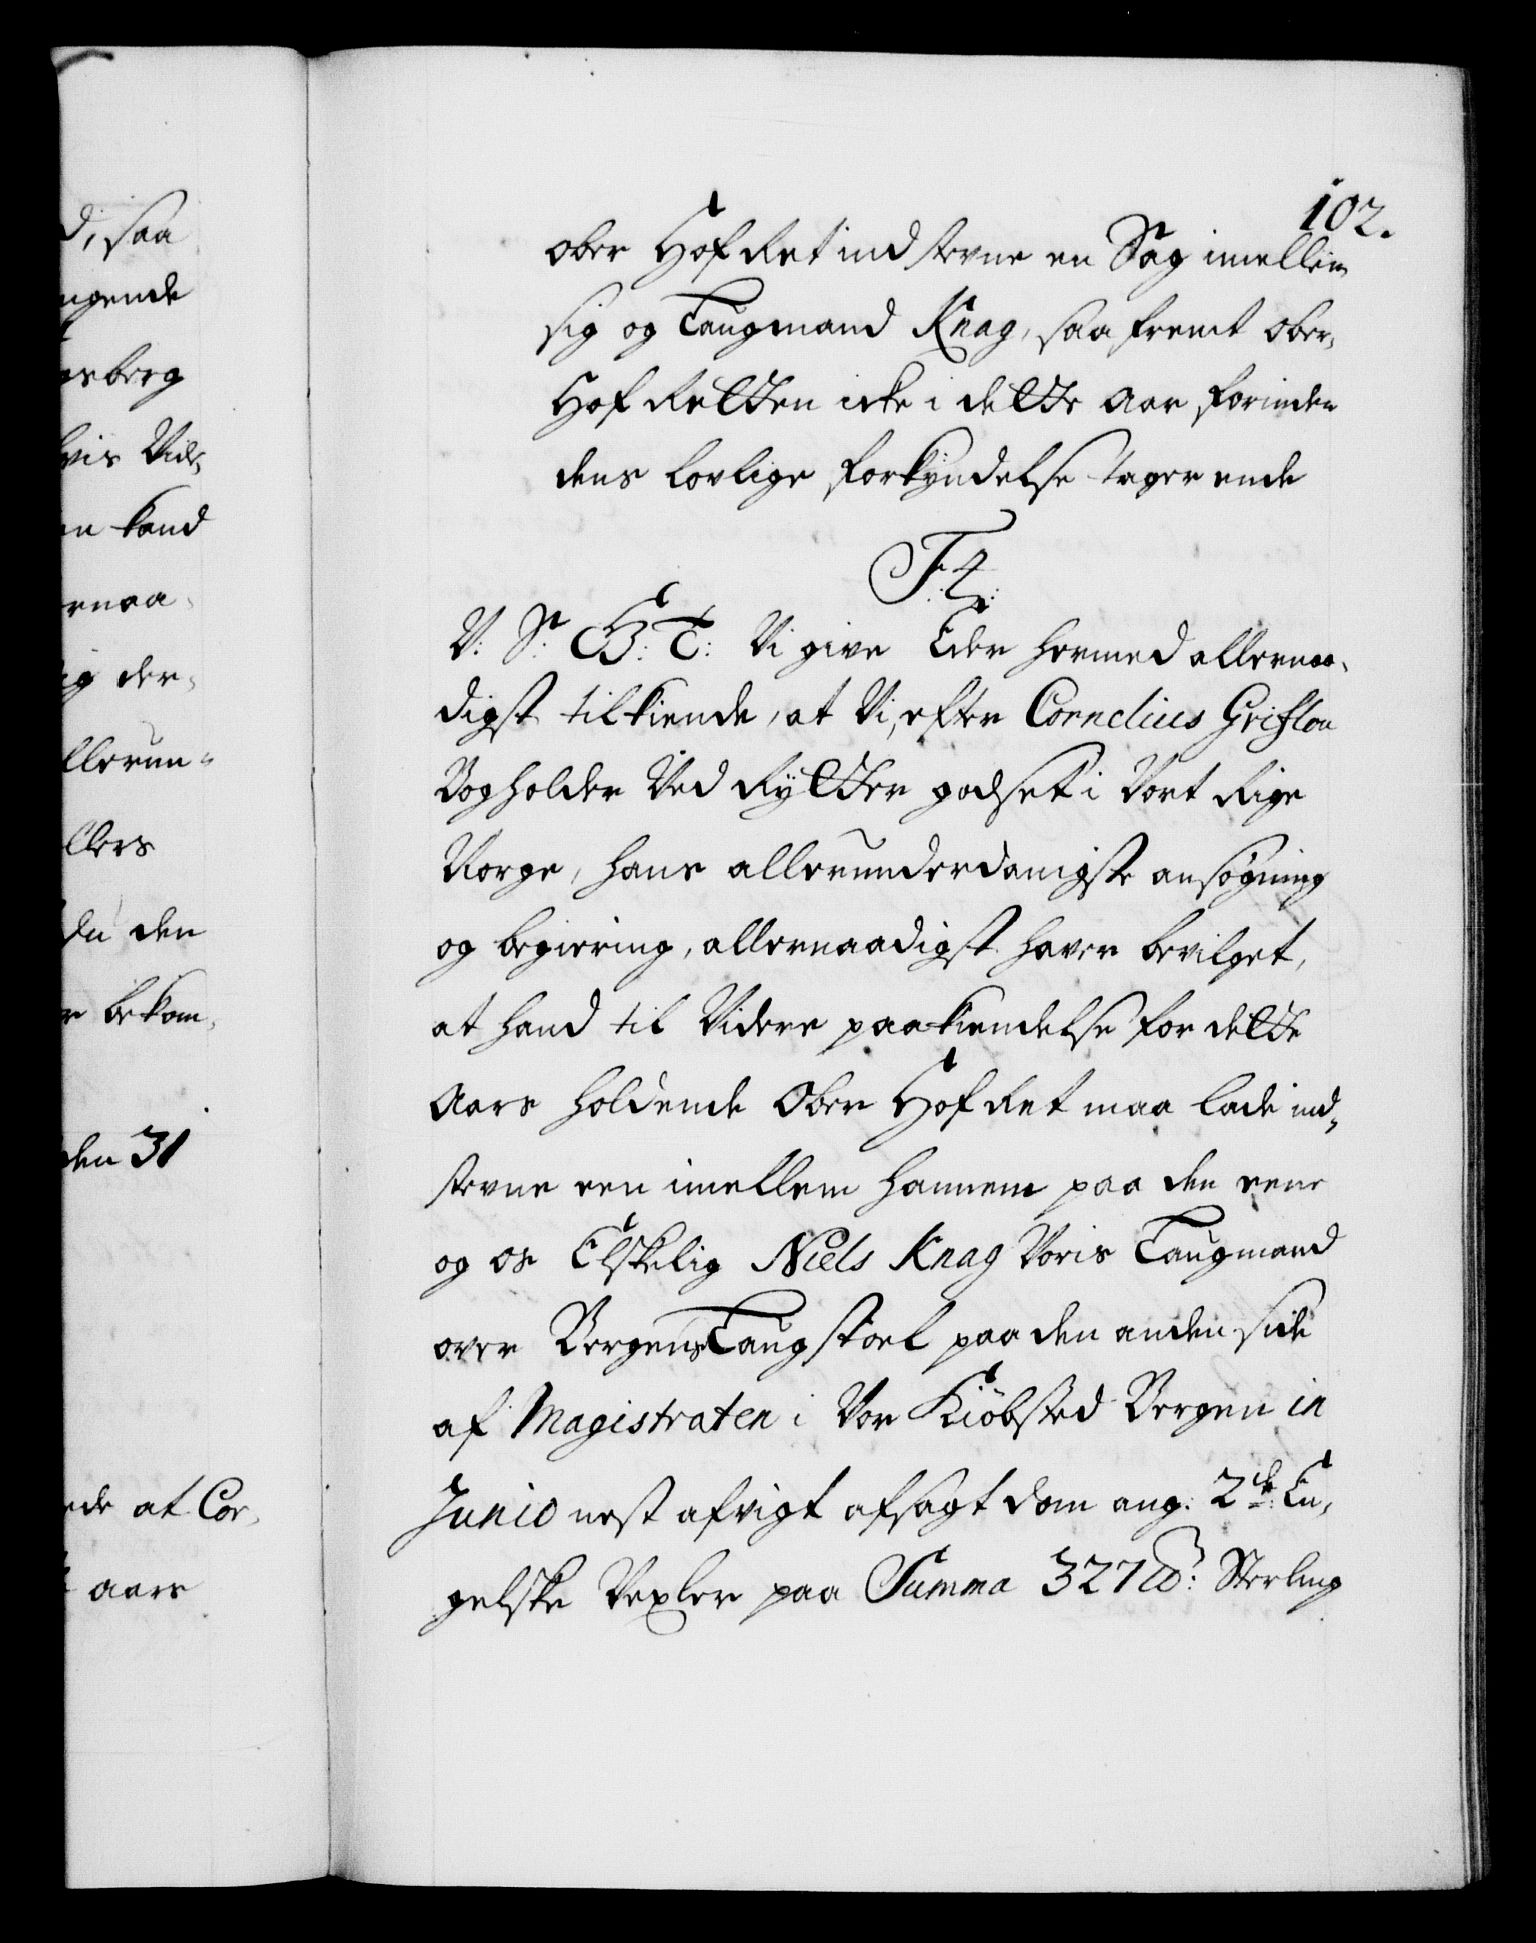 d, saa
ngende
gsberg
hvis Vide,
en kand
ernaa,
ig der,
llerun,
llers
du den
e bekom,
den 31
ede at Cor,
t aars
102.
ober Hof Ret ind stevne en Sag imellem
sig og Laugmand Knag, saa fremt Ober,
Hof Retten icke i dette Aar forinden
dens lovlige forkyndelse tager ende
F. 4.
V: S: G: T: Vi give Eder hermed allernaa,
digst tilkiende, at Vi, efter Cornelius Grislou
Bogholder Ved Rytter godset i Vort Rige
Norge, hans allerunderdanigste ansøgning
og begiering, allernaadigst haver bevilget,
at hand til Videre paakiendelse for dette
Aars holdende Ober Hof Ret maa lade ind,
stevne een imellem hannem paa den eene
og os Elskelig Niels Knag Voris Laugmand
over Bergens Laugstoel paa den anden side
af Magistraten i Vor Kiöbsted Bergen in
Junio nest afvigt afsagt dom ang: 2de En,
gelske Vexler paa Summa 327 lb: Sterling